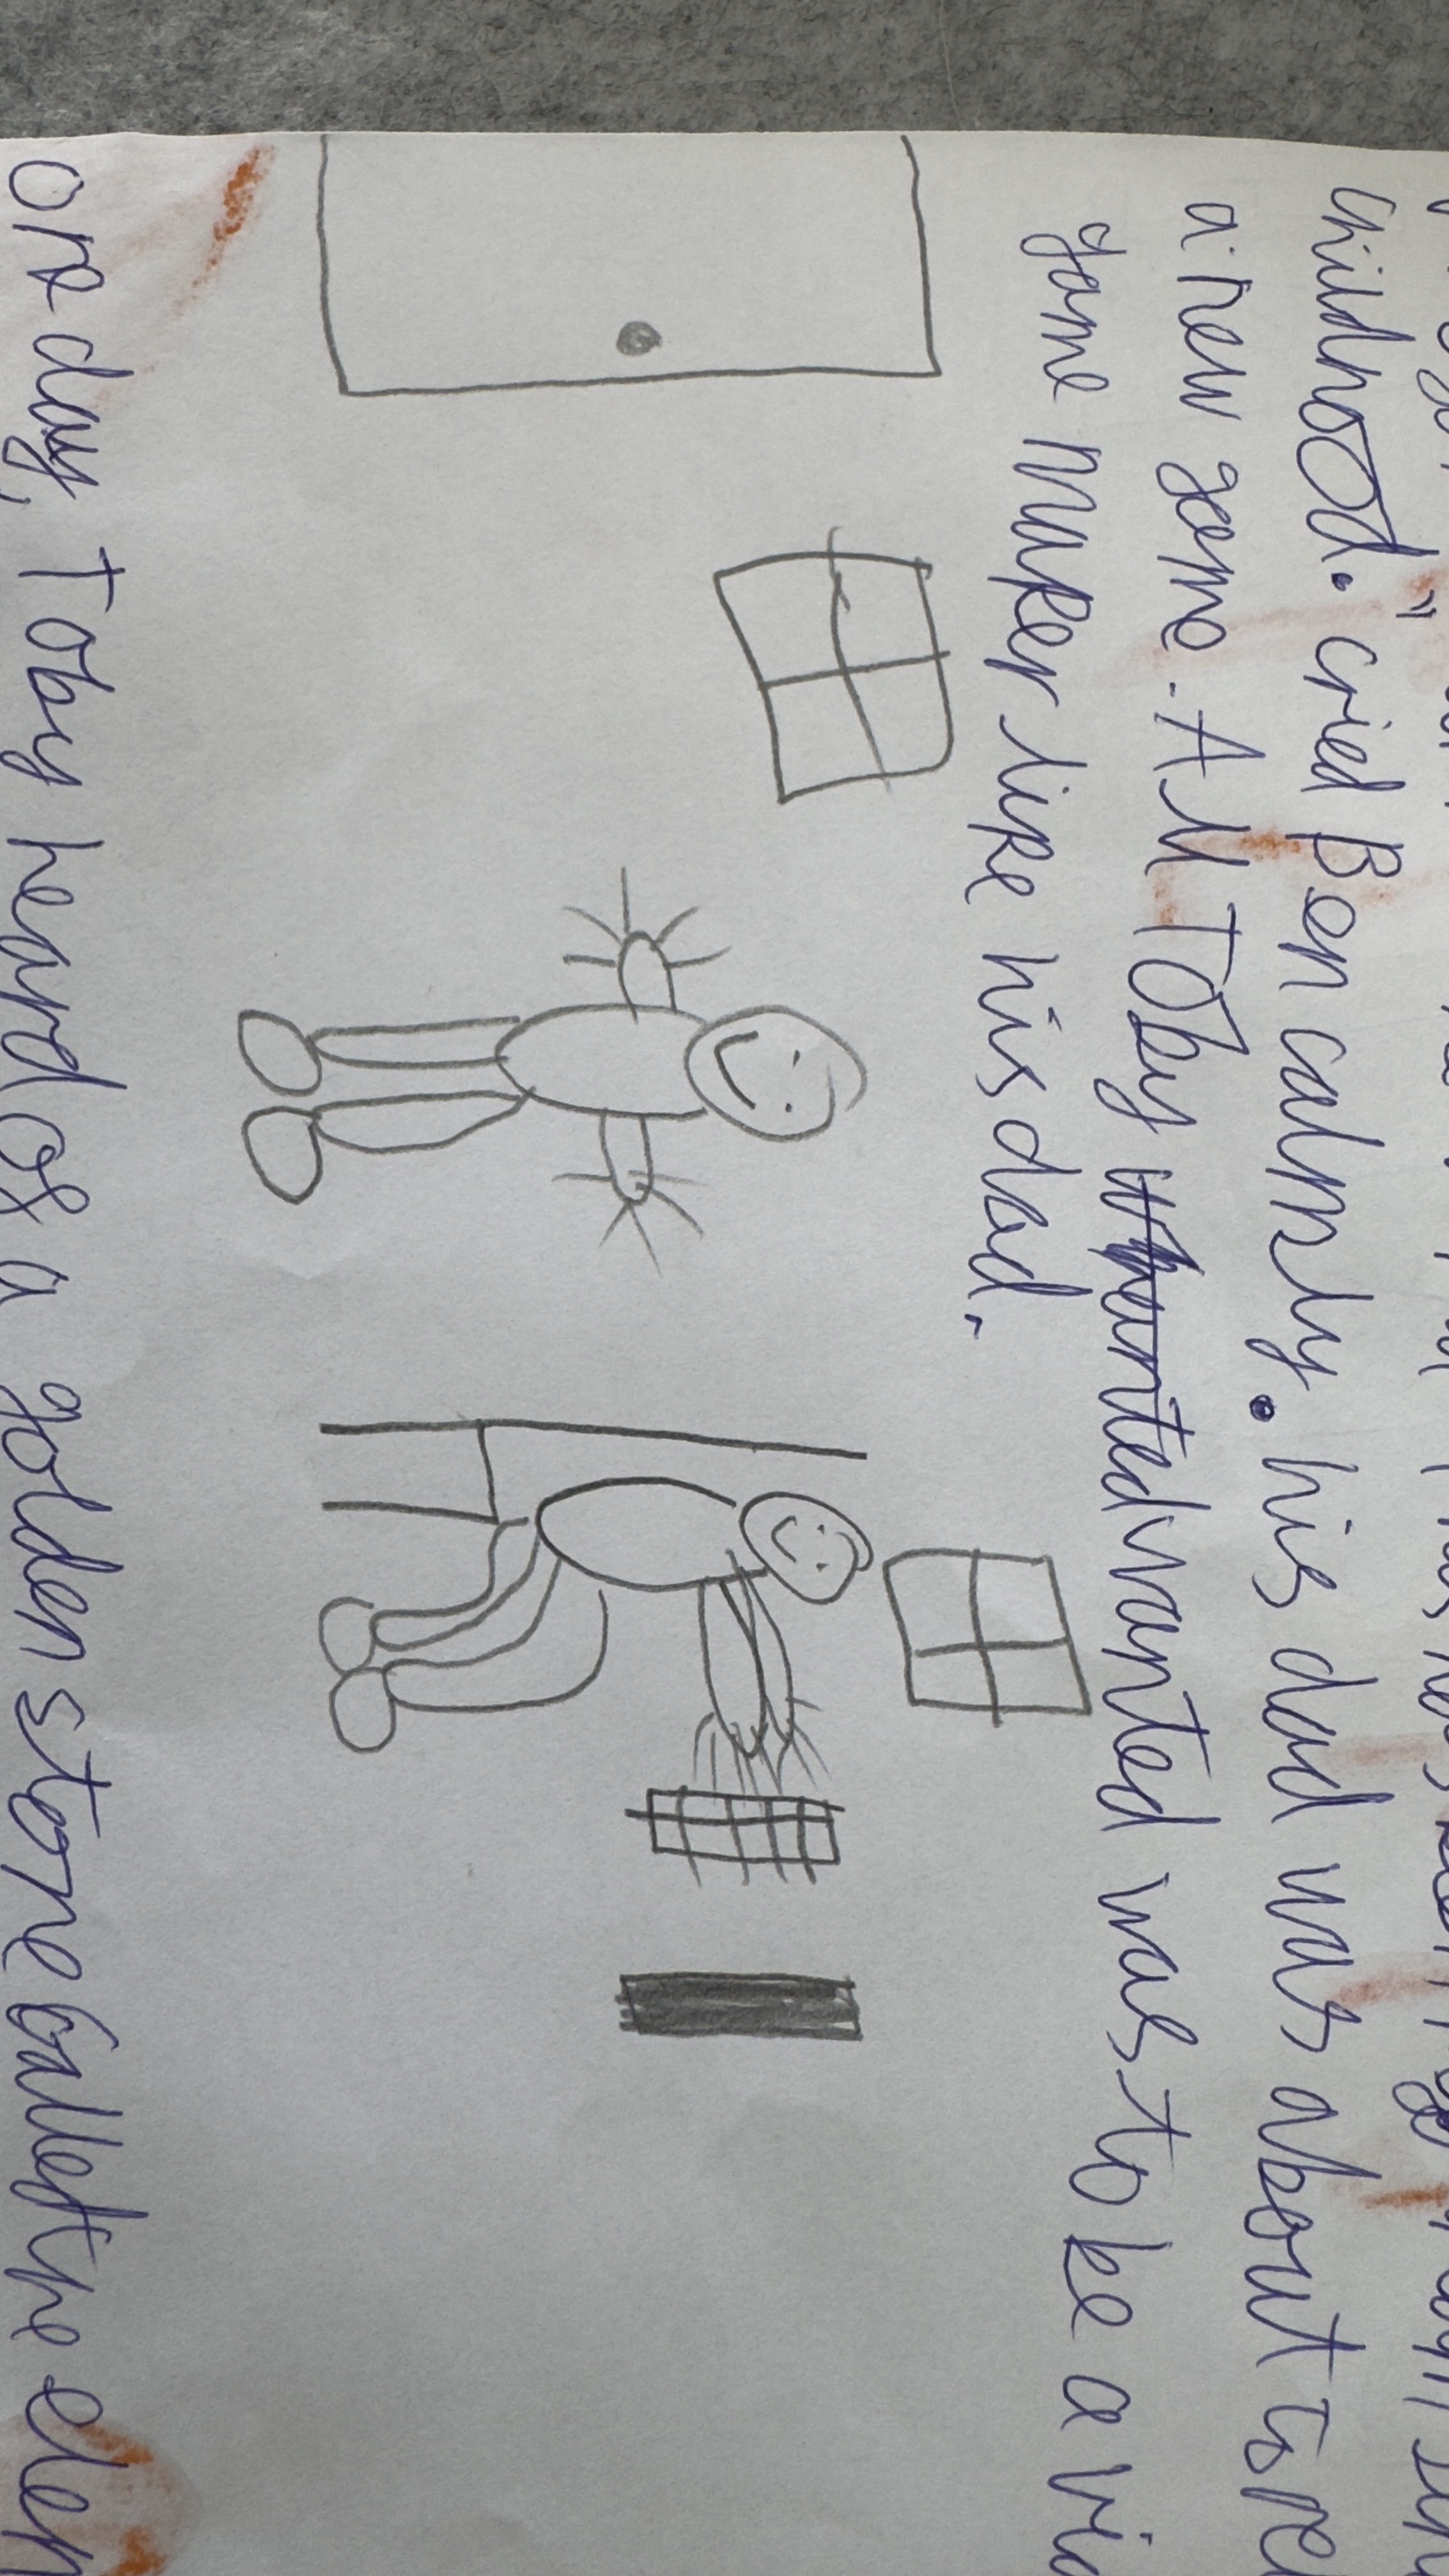 childhood." cried Ben calmly. his dad was about to re
a new game. All Toby wanted was to be a vi
game maker like his dad.
one day, Toby heard of a golden stone called the elem